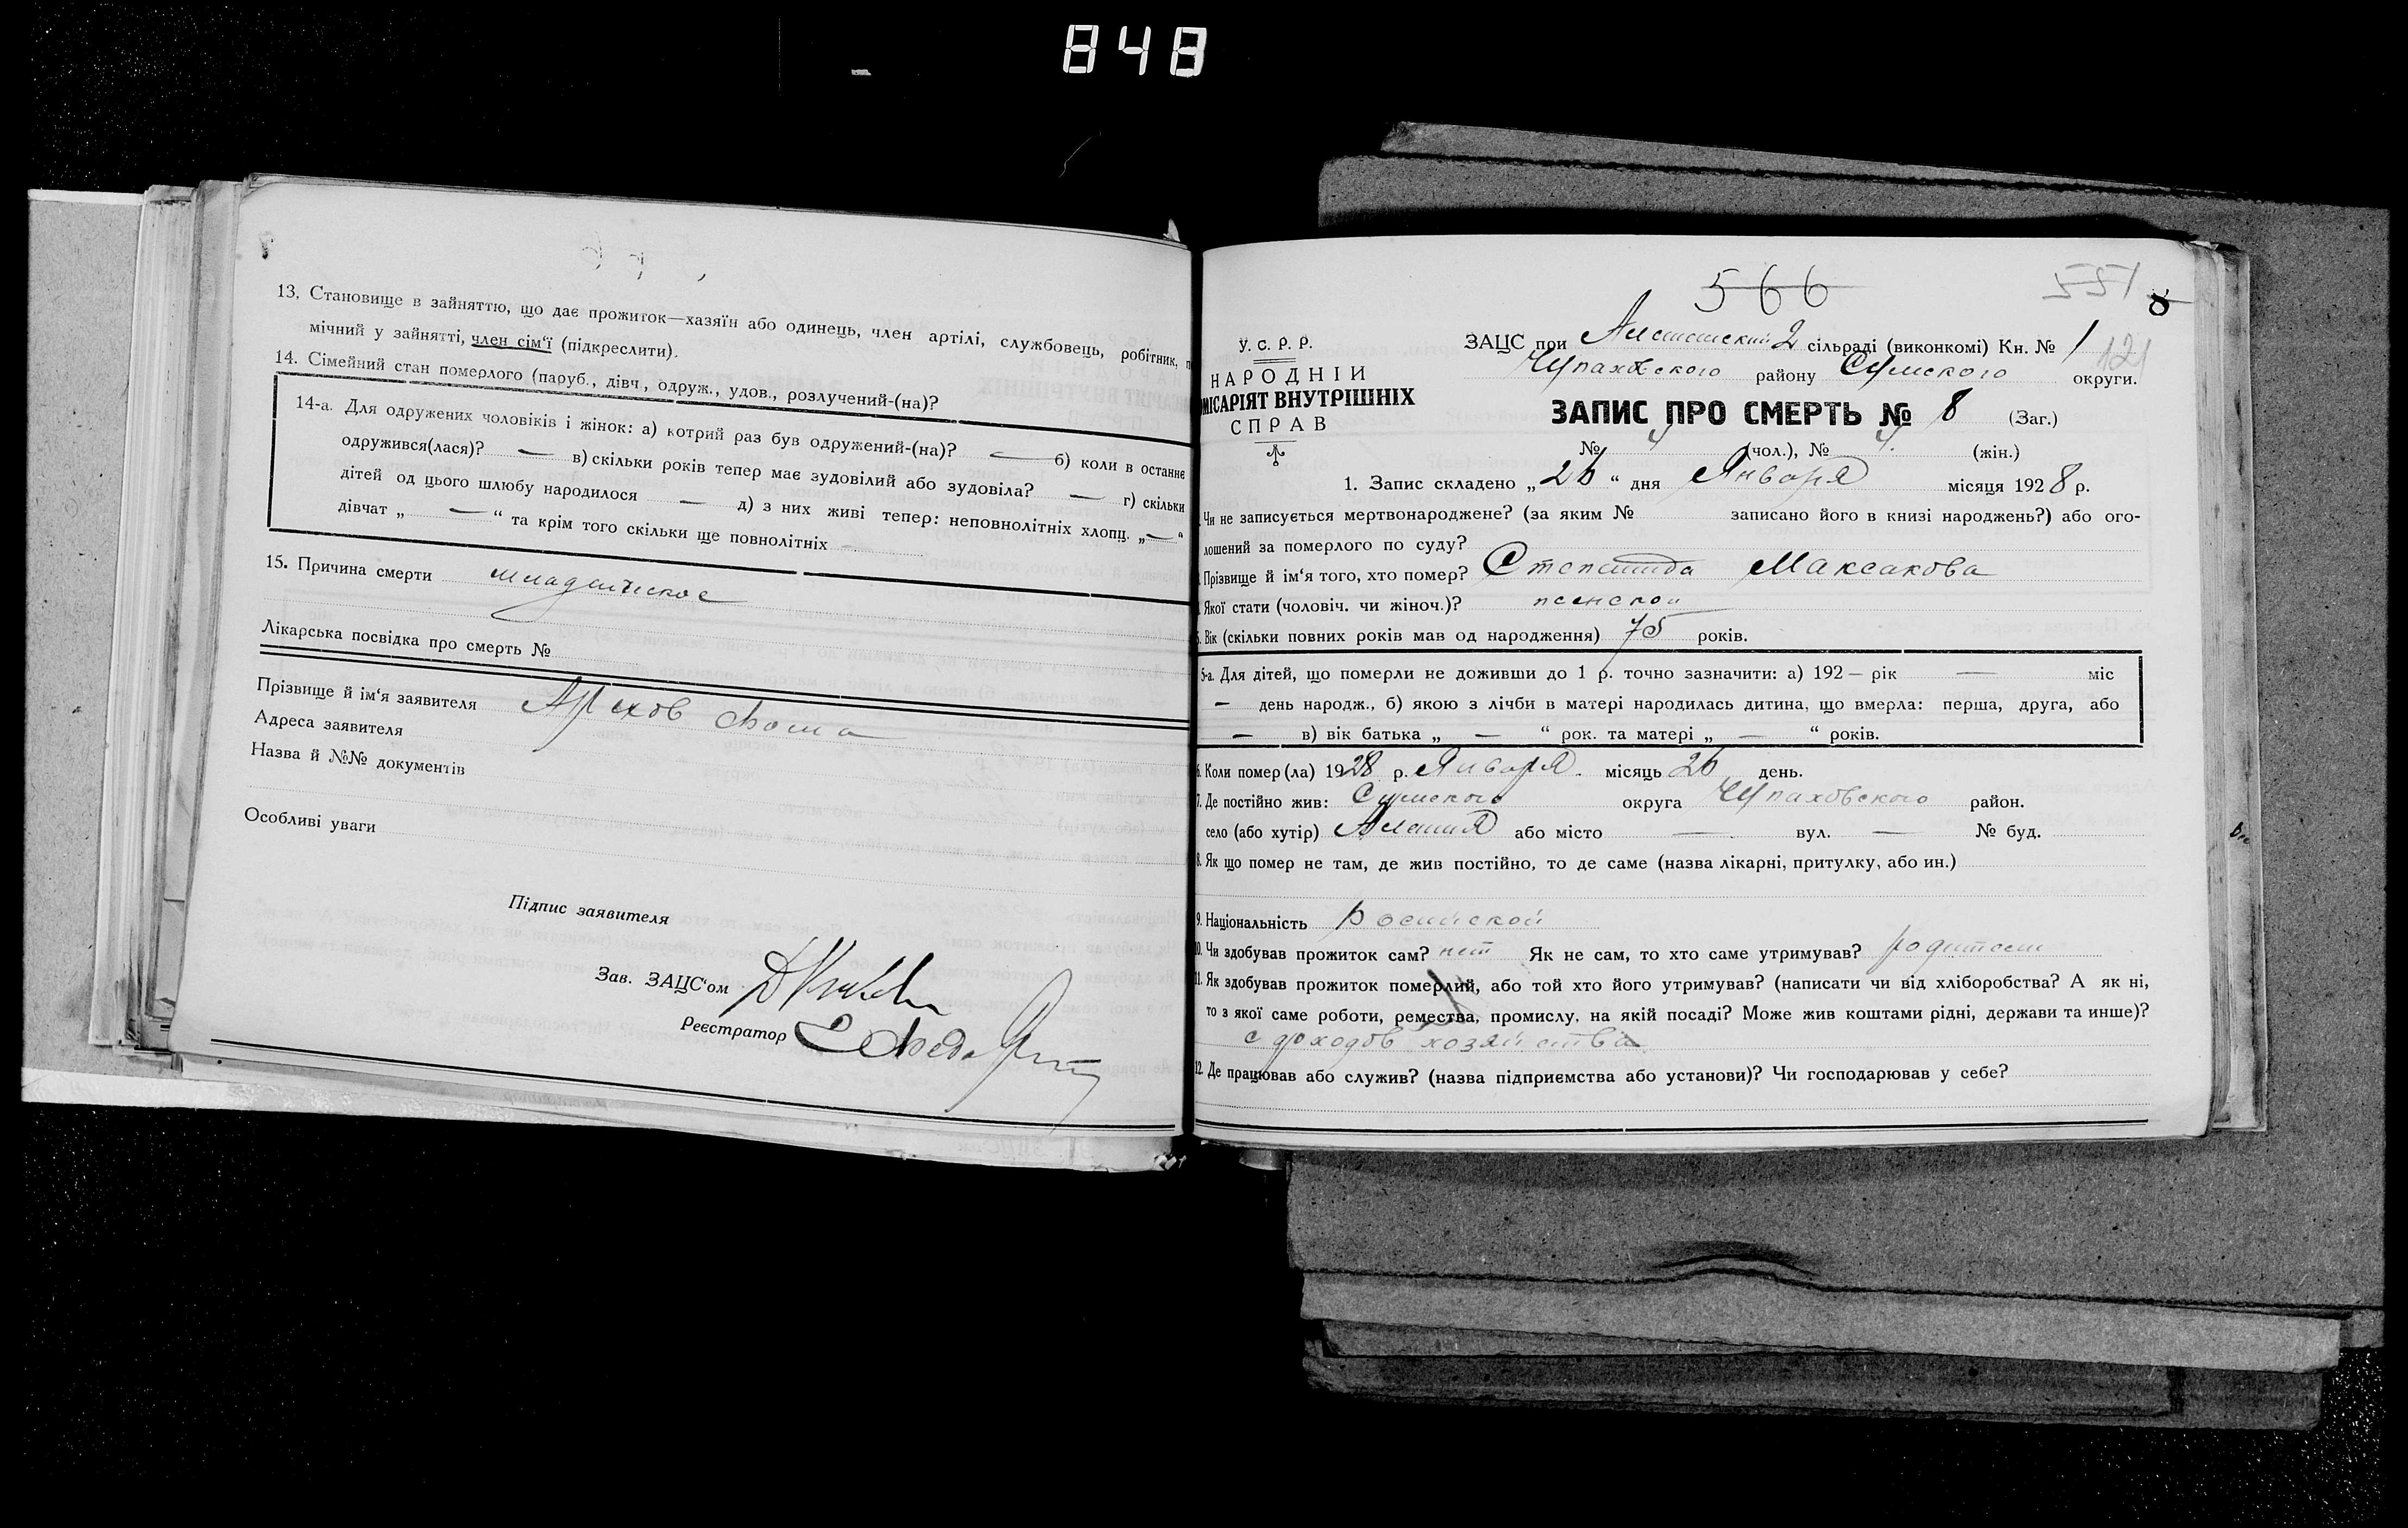 848
13. Становище в зайняттю, що дає прожиток—хазяїн або одинець, член артілі, службовець, робітник, п
мічний у зайнятті, член сім'ї (підкреслити).
14. Сімейний стан померлого (паруб., дівч., одруж., удов., розлучений-(на)?
14-а. Для одружених чоловіків і жінок: а) котрий раз був одружений-(на)? — б) коли в останнє
одружився(лася)? — в) скільки років тепер має зудовілий або зудовіла? — г) скільки
дітей од цього шлюбу народилося — д) з них живі тепер: неповнолітніх хлопц. „—“
дівчат „ — “ та крім того скільки ще повнолітніх —
15. Причина смерти младенческое
Лікарська посвідка про смерть №
Прізвище й ім'я заявителя
Адреса заявителя
Назва й №№ документів
Особливі уваги
Підпис заявителя
Зав. ЗАЦС'ом
Реєстратор
566
551 8
У. С. Р. Р.
НАРОДНІЙ
МІСАРІЯТ ВНУТРІШНІХ
СПРАВ
ЗАЦС при 2 сільраді (виконкомі) Кн. № 1
121
Чупаховского району Сумского округи.
ЗАПИС ПРО СМЕРТЬ № 8 (Заг.)
№ 4 (чол.), № 4. (жін.)
1. Запис складено „26“ дня Января місяця 1928 р.
Чи не записується мертвонароджене? (за яким № записано його в книзі народжень?) або ого-
лошений за померлого по суду?
Прізвище й ім'я того, хто помер? Степанида Максакова
Якої стати (чоловіч. чи жіноч.)? женской
5. Вік (скільки повних років мав од народження) 75 років.
5-а. Для дітей, що померли не доживши до 1 р. точно зазначити: а) 192 — рік — міс
— день народж., б) якою з лічби в матері народилась дитина, що вмерла: перша, друга, або
— в) вік батька „ — “ рок. та матері „ — “ років.
6. Коли помер (ла) 1928 р. Января. місяць 26 день.
7. Де постійно жив: Сумского округа Чупаховского район.
село (або хутір) Алешня або місто — вул. — № буд.
8. Як що помер не там, де жив постійно, то де саме (назва лікарні, притулку, або ин.)
9. Національність Росийской
10. Чи здобував прожиток сам? нет Як не сам, то хто саме утримував? родители
11. Як здобував прожиток померлий, або той хто його утримував? (написати чи від хліборобства? А як ні,
то з якої саме роботи, ремества, промислу, на якій посаді? Може жив коштами рідні, держави та инше)?
с доходов хозяйства
12. Де працював або служив? (назва підприємства або установи)? Чи господарював у себе?